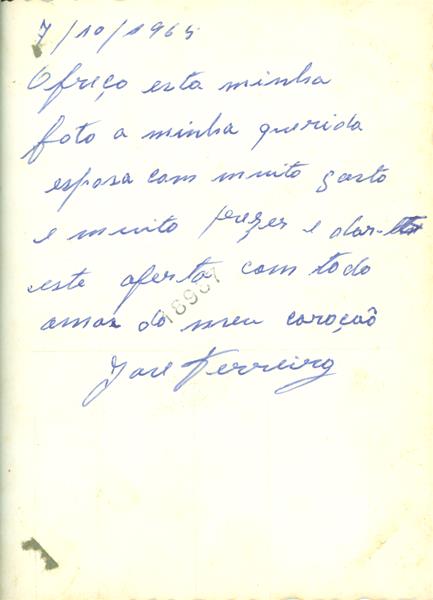 7/10/1965
Ofreço esta minha
foto a minha querida
esposa com muito gosto
e muito prezer e dar-te
este oferta com todo
amor do meu coração
18967
José Ferreira